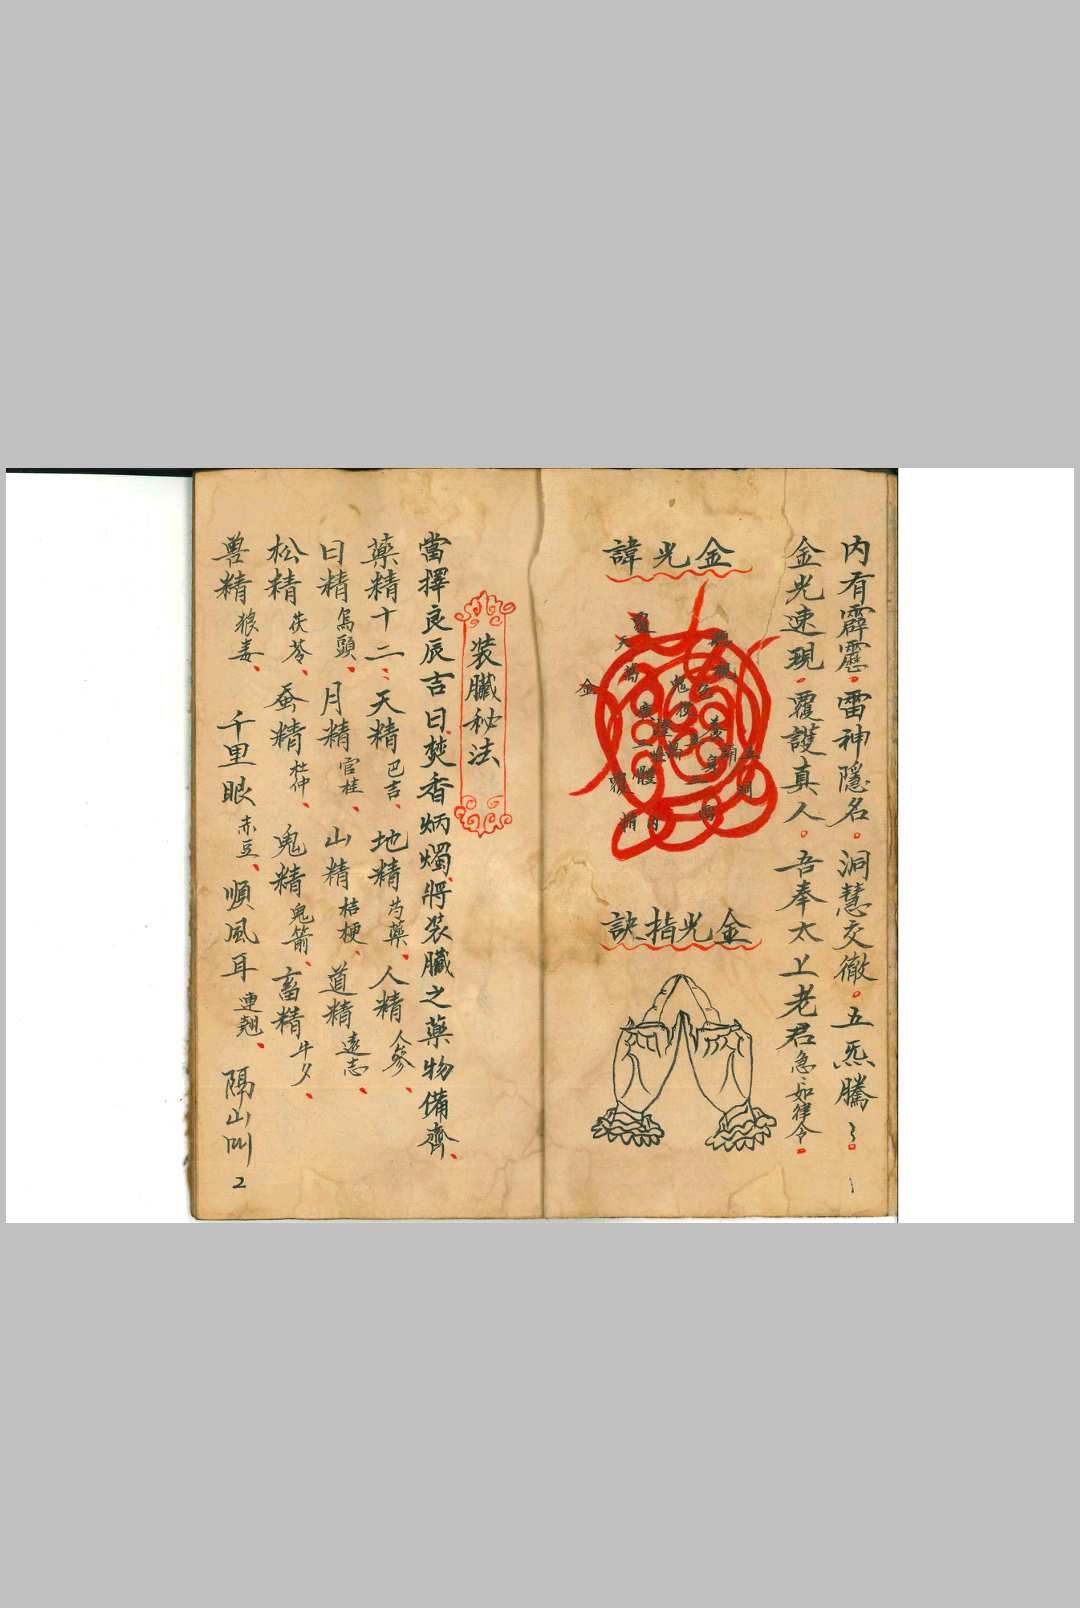 內有霹靂。雷神隱名。洞慧交徹。五炁騰〻。
金光速現。覆護真人。吾奉太上老君急〻如律令。
金光諱
金光指訣
裝臟秘法
當擇良辰吉日焚香炳燭、將裝臟之藥物備齊、
藥精十二、天精巴吉、地精芍藥、人精人參、
日精烏頭、月精官桂、山精桔梗、道精遠志、
松精茯苓、蚕精杜仲、鬼精鬼箭、畜精牛夕、
兽精狼毒、千里眼赤豆、順風耳連翹、隔山叫
2